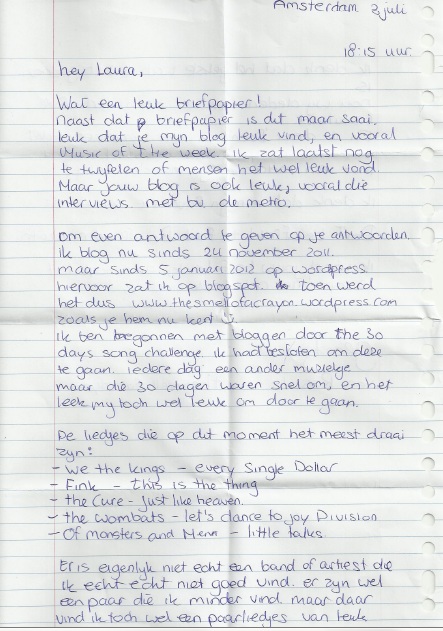 Amsterdam 2 juli
18:15 uur.
hey Laura,
Wat een leuk briefpapier!
naast dat briefpapier is dit maar saai.
leuk dat je mijn blog leuk vind, en vooral
Music of the week. ik zat laatst nog
te twijfelen of mensen het wel leuk vond.
Maar jouw blog is ook leuk, vooral die
interviews. met bv de metro.
om even antwoord te geven op je antwoorden.
ik blog nu sinds 24 november 2011.
maar sinds 5 januari 2012 op wordpress
hiervoor zat ik op blogspot. toen werd
het dus www.thesmellofacrayon.wordpress.com
zoals je hem nu kent
ik ben begonnen met bloggen door the 30
days song challenge. ik had besloten om deze
te gaan. iedere dag een ander muziekje
maar die 30 dagen waren snel om, en het
leek mij toch wel leuk om door te gaan.
De liedjes die op dit moment het meest draai
zijn:
- We the kings - every Single Dollar
- Fink - this is the thing
- the Cure - Just like heaven.
- the wombats - let's dance to joy Division
- Of monsters and Menn - little talks.
Er is eigenlijk niet echt een band of artiest die
ik echt echt niet goed vind. er zijn wel
een paar die ik minder vind. maar daar
vind ik toch wel een paar liedjes van leuk